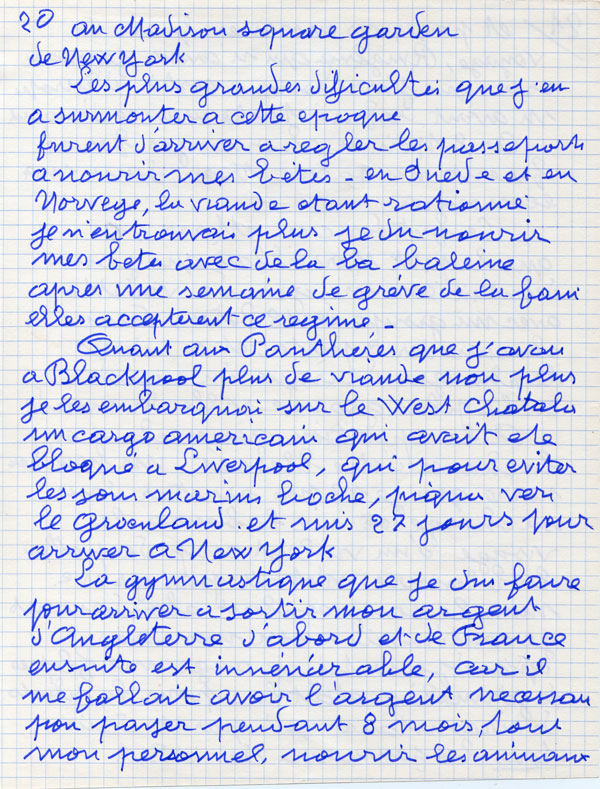 20 au Madison square garden
de New York
Les plus grandes difficultés que j'eu
a surmonter a cette epoque
furent d'arriver a regler les passeports
a nourrir mes bêtes - en Suede et en
Norvege, la viande etant rationné
je n'en trouvais plus je du nourrir
mes betes avec de la ba baleine
apres une semaine de gréve de la faim
elles accepterent ce regime -
Quant aux Panthéres que j'avais
a Blackpool plus de viande non plus
je les embarquai sur le West Chatala
un cargo americain qui avait ete
bloqué a Liverpool, qui pour eviter
les sous marins boche, piqua vers
le Groenland. et mis 27 jours pour
arriver a New York
La gymnastique que je dus faire
pour arriver a sortir mon argent
d'Angleterre d'abord et de France
ensuite est innénérable, car il
me fallait avoir l'argent necessau
pou payer pendant 8 mois, tout
mon personnel, nourrir les animaux